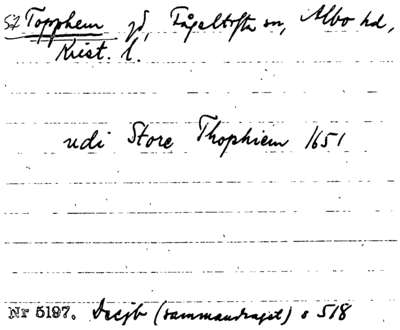 St Topphem gd, Fågeltofta sn, Albo hd,
Krist. l.
udi Store Thophiem 1651
Nr 5197. Decjb (sammandraget) s 518